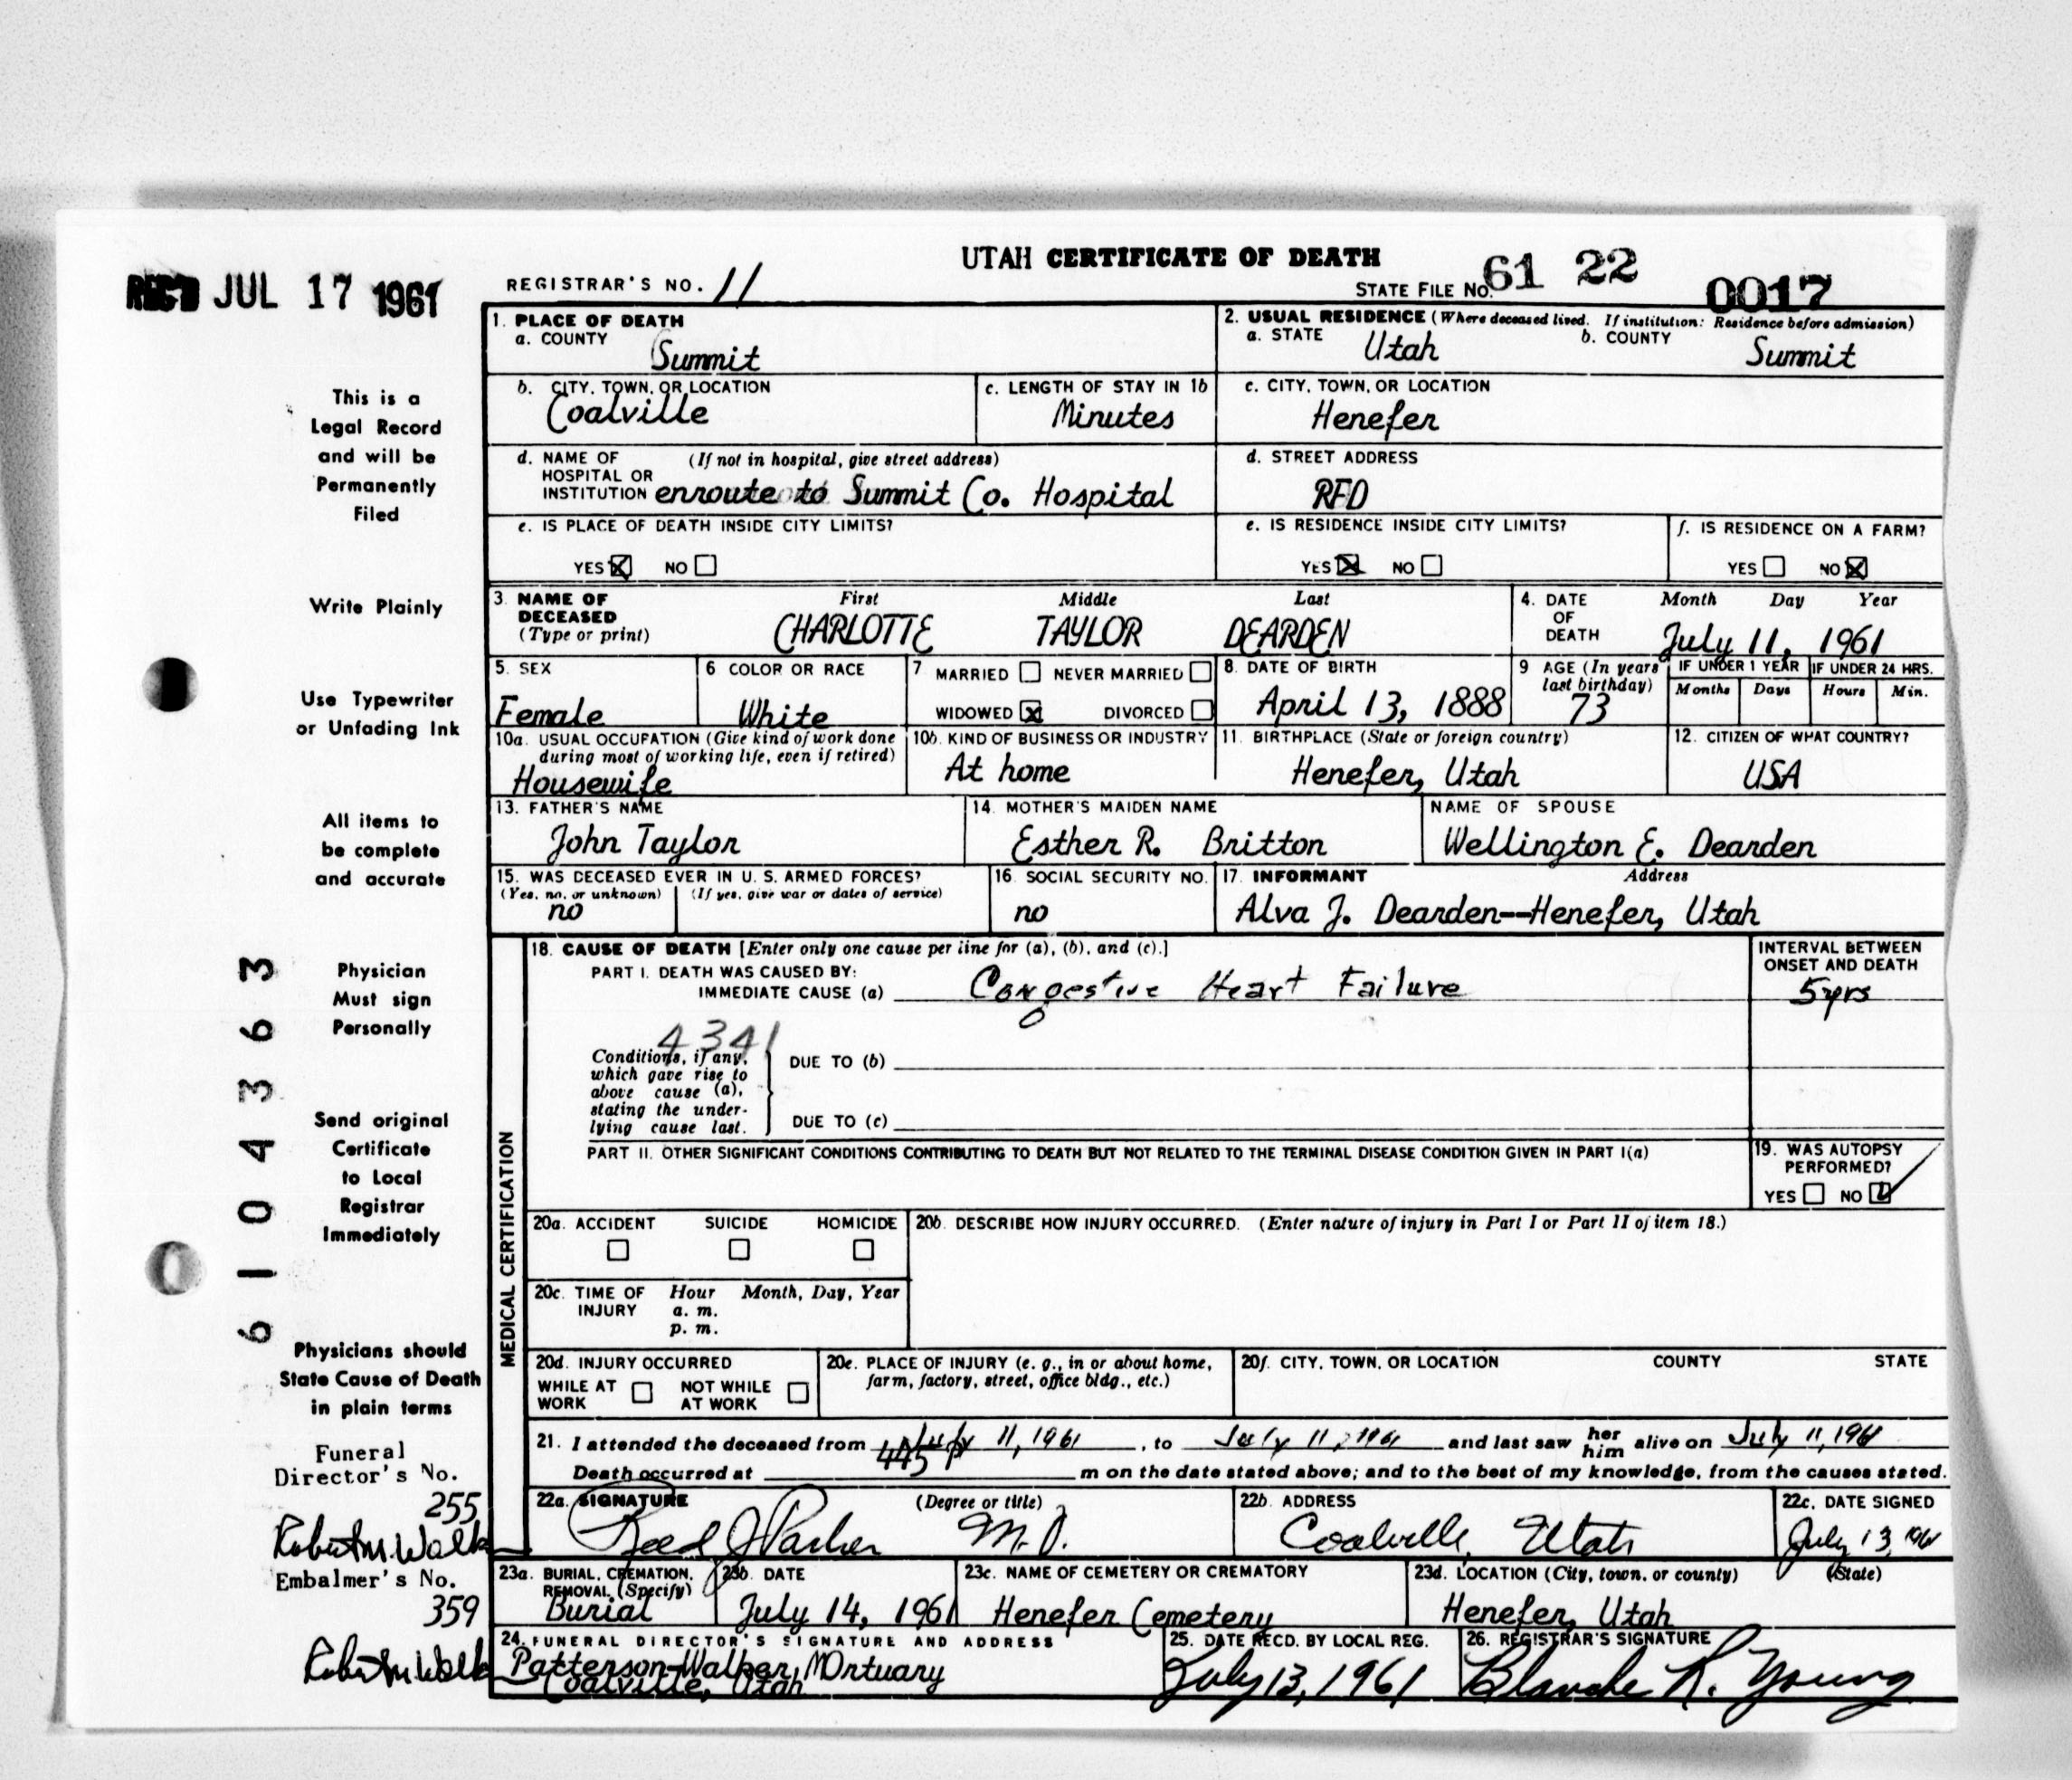 UTAH CERTIFICATE OF DEATH
REC'D JUL 17 1961
REGISTRAR'S NO. 11
STATE FILE NO. 61 22 0017
1. PLACE OF DEATH
a. COUNTY
Summit
2. USUAL RESIDENCE (Where deceased lived. If institution: Residence before admission)
a. STATE Utah b. COUNTY Summit
b. CITY, TOWN, OR LOCATION
Coalville
c. LENGTH OF STAY IN 1b
Minutes
c. CITY, TOWN, OR LOCATION
Henefer
d. NAME OF (If not in hospital, give street address)
HOSPITAL OR
INSTITUTION enroute to Summit Co. Hospital
d. STREET ADDRESS
RFD
e. IS PLACE OF DEATH INSIDE CITY LIMITS?
YES ☒ NO ☐
e. IS RESIDENCE INSIDE CITY LIMITS?
YES ☒ NO ☐
f. IS RESIDENCE ON A FARM?
YES ☐ NO ☒
3. NAME OF DECEASED (Type or print)
First Middle Last
CHARLOTTE TAYLOR DEARDEN
4. DATE OF DEATH
Month Day Year
July 11, 1961
5. SEX
Female
6 COLOR OR RACE
White
7 MARRIED ☐ NEVER MARRIED ☐
WIDOWED ☒ DIVORCED ☐
8. DATE OF BIRTH
April 13, 1888
9 AGE (In years last birthday)
73
IF UNDER 1 YEAR
Months Days
IF UNDER 24 HRS.
Hours Min.
10a. USUAL OCCUPATION (Give kind of work done
during most of working life, even if retired)
Housewife
10b. KIND OF BUSINESS OR INDUSTRY
At home
11. BIRTHPLACE (State or foreign country)
Henefer, Utah
12. CITIZEN OF WHAT COUNTRY?
USA
13. FATHER'S NAME
John Taylor
14. MOTHER'S MAIDEN NAME
Esther R. Britton
NAME OF SPOUSE
Wellington E. Dearden
15. WAS DECEASED EVER IN U. S. ARMED FORCES?
(Yes, no, or unknown) (If yes, give war or dates of service)
no
16. SOCIAL SECURITY NO.
no
17. INFORMANT Address
Alva J. Dearden--Henefer, Utah
MEDICAL CERTIFICATION
18. CAUSE OF DEATH [Enter only one cause per line for (a), (b), and (c).]
PART I. DEATH WAS CAUSED BY:
IMMEDIATE CAUSE (a) Congestive Heart Failure
INTERVAL BETWEEN
ONSET AND DEATH
5 yrs
4341
Conditions, if any,
which gave rise to
above cause (a),
stating the under-
lying cause last.
DUE TO (b)
DUE TO (c)
PART II. OTHER SIGNIFICANT CONDITIONS CONTRIBUTING TO DEATH BUT NOT RELATED TO THE TERMINAL DISEASE CONDITION GIVEN IN PART I(a)
19. WAS AUTOPSY
PERFORMED?
YES ☐ NO ☑
20a. ACCIDENT SUICIDE HOMICIDE
☐ ☐ ☐
20b. DESCRIBE HOW INJURY OCCURRED. (Enter nature of injury in Part I or Part II of item 18.)
20c. TIME OF INJURY
Hour Month, Day, Year
a. m.
p. m.
20d. INJURY OCCURRED
WHILE AT WORK ☐ NOT WHILE AT WORK ☐
20e. PLACE OF INJURY (e. g., in or about home,
farm, factory, street, office bldg., etc.)
20f. CITY, TOWN, OR LOCATION COUNTY STATE
21. I attended the deceased from July 11, 1961, to July 11, 1961 and last saw her him alive on July 11, 1961
Death occurred at 445 P m on the date stated above; and to the best of my knowledge, from the causes stated.
22a. SIGNATURE (Degree or title)
Reed J Parker M.D.
22b. ADDRESS
Coalville, Utah
22c. DATE SIGNED
July 13, 1961
23a. BURIAL, CREMATION,
REMOVAL (Specify)
Burial
23b. DATE
July 14, 1961
23c. NAME OF CEMETERY OR CREMATORY
Henefer Cemetery
23d. LOCATION (City, town, or county) (State)
Henefer, Utah
24. FUNERAL DIRECTOR'S SIGNATURE AND ADDRESS
Patterson-Walker MOrtuary
Coalville, Utah
25. DATE RECD. BY LOCAL REG.
July 13, 1961
26. REGISTRAR'S SIGNATURE
Blanche R. Young
This is a
Legal Record
and will be
Permanently
Filed
Write Plainly
Use Typewriter
or Unfading Ink
All items to
be complete
and accurate
Physician
Must sign
Personally
Send original
Certificate
to Local
Registrar
Immediately
Physicians should
State Cause of Death
in plain terms
61 04 3363
Funeral
Director's No.
255
Robert M. Walk
Embalmer's No.
359
Robert M Walk